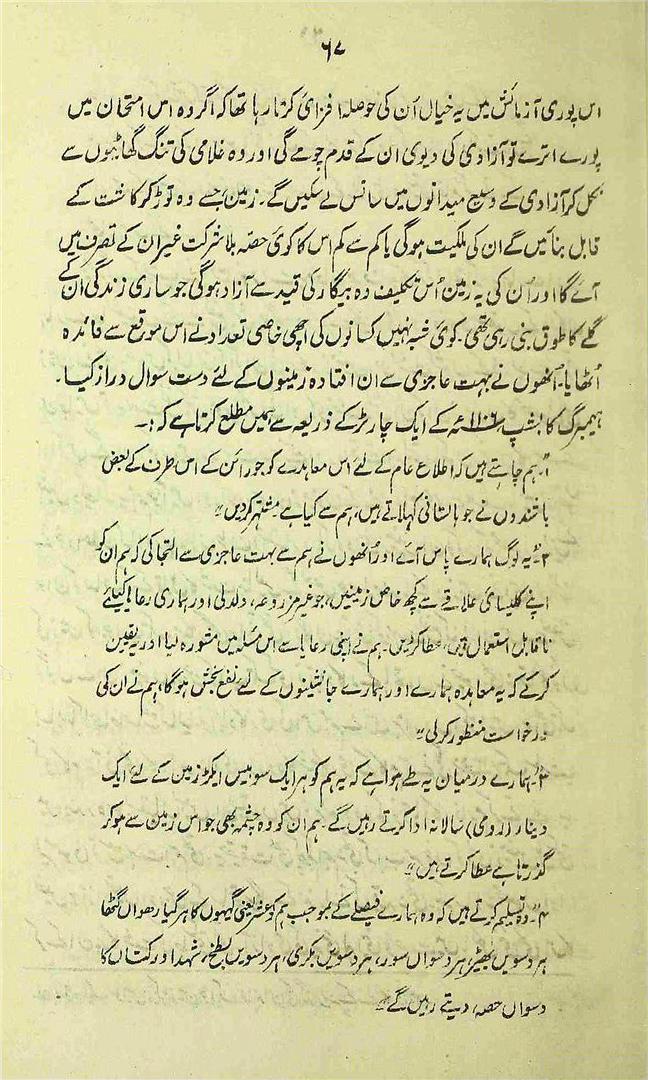 ۶۷
اس پوری آزمائش میں یہ خیال اُن کی حوصلہ افزائی کرتا رہا تھا کہ اگر وہ اس امتحان میں
پورے اترے تو آزادی کی دیوی ان کے قدم چومے گی اور وہ غلامی کی تنگ گھاٹیوں سے
نکل کر آزادی کے وسیع میدانوں میں سانس لے سکیں گے۔ زمین جسے وہ توڑ کر کاشت کے
قابل بنائیں گے ان کی ملکیت ہوگی یا کم سے کم اس کا کوئی حصہ بلا شرکت غیر ان کے تصرف میں
آئے گا اور اُن کی یہ زمین اُس تکلیف دہ بیگار کی قید سے آزاد ہوگی جو ساری زندگی ان کے
گلے کا طوق بنی رہی تھی۔ کوئی شبہ نہیں کسانوں کی اچھی خاصی تعداد نے اس موقع سے فائدہ
اُٹھایا۔ اُنھوں نے بہت عاجزی سے ان افتادہ زمینوں کے لئے دست سوال دراز کیا۔
ہیمبرگ کا بشپ ۱۱۰۶ء کے ایک چارٹر کے ذریعہ سے ہمیں مطلع کرتا ہے کہ :۔
۱۔ "ہم چاہتے ہیں کہ اطلاع عام کے لئے اس معاہدے کو جو رائن کے اس طرف کے بعض
باشندوں نے جو ہالستانی کہلاتے ہیں، ہم سے کیا ہے۔ مشتہر کردیں"
۲۔ "یہ لوگ ہمارے پاس آئے اور اُنھوں نے ہم سے بہت عاجزی سے التجا کی کہ ہم ان کو
اپنے کلیسائی علاقے سے کچھ خاص زمینیں، جو غیر مزروعہ، دلدلی اور ہماری رعایا کیلئے
ناقابل استعمال ہیں، عطا کردیں۔ ہم نے اپنی رعایا سے اس مسئلہ میں مشورہ لیا اور یہ یقین
کرکے کہ یہ معاہدہ ہمارے اور ہمارے جانشینوں کے لئے نفع بخش ہوگا، ہم نے ان کی
درخواست منظور کرلی"
۳۔ "ہمارے درمیان یہ طے ہوا ہے کہ یہ ہم کو ہر ایک سو بیس ایکڑ زمین کے لئے ایک
دینار (رومی) سالانہ ادا کرتے رہیں گے۔ ہم ان کو وہ چشمہ بھی جو اس زمین سے ہو کر
گذرتا ہے عطا کرتے ہیں"
۴۔ "وہ تسلیم کرتے ہیں کہ وہ ہمارے فیصلے کے بموجب ہم کو عشر یعنی گیہوں کا ہر گیارھواں گٹھا
ہر دسویں بھیڑ، ہر دسواں سور، ہر دسویں بکری، ہر دسویں بطخ، شہد اور کتاں کا
دسواں حصہ، دیتے رہیں گے"